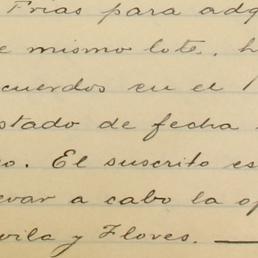 Frias para adq
e mismo lote, h
cuerdos en el
stado de fecha
o. El suscrito es
evar a cabo la op
vila y Flores.